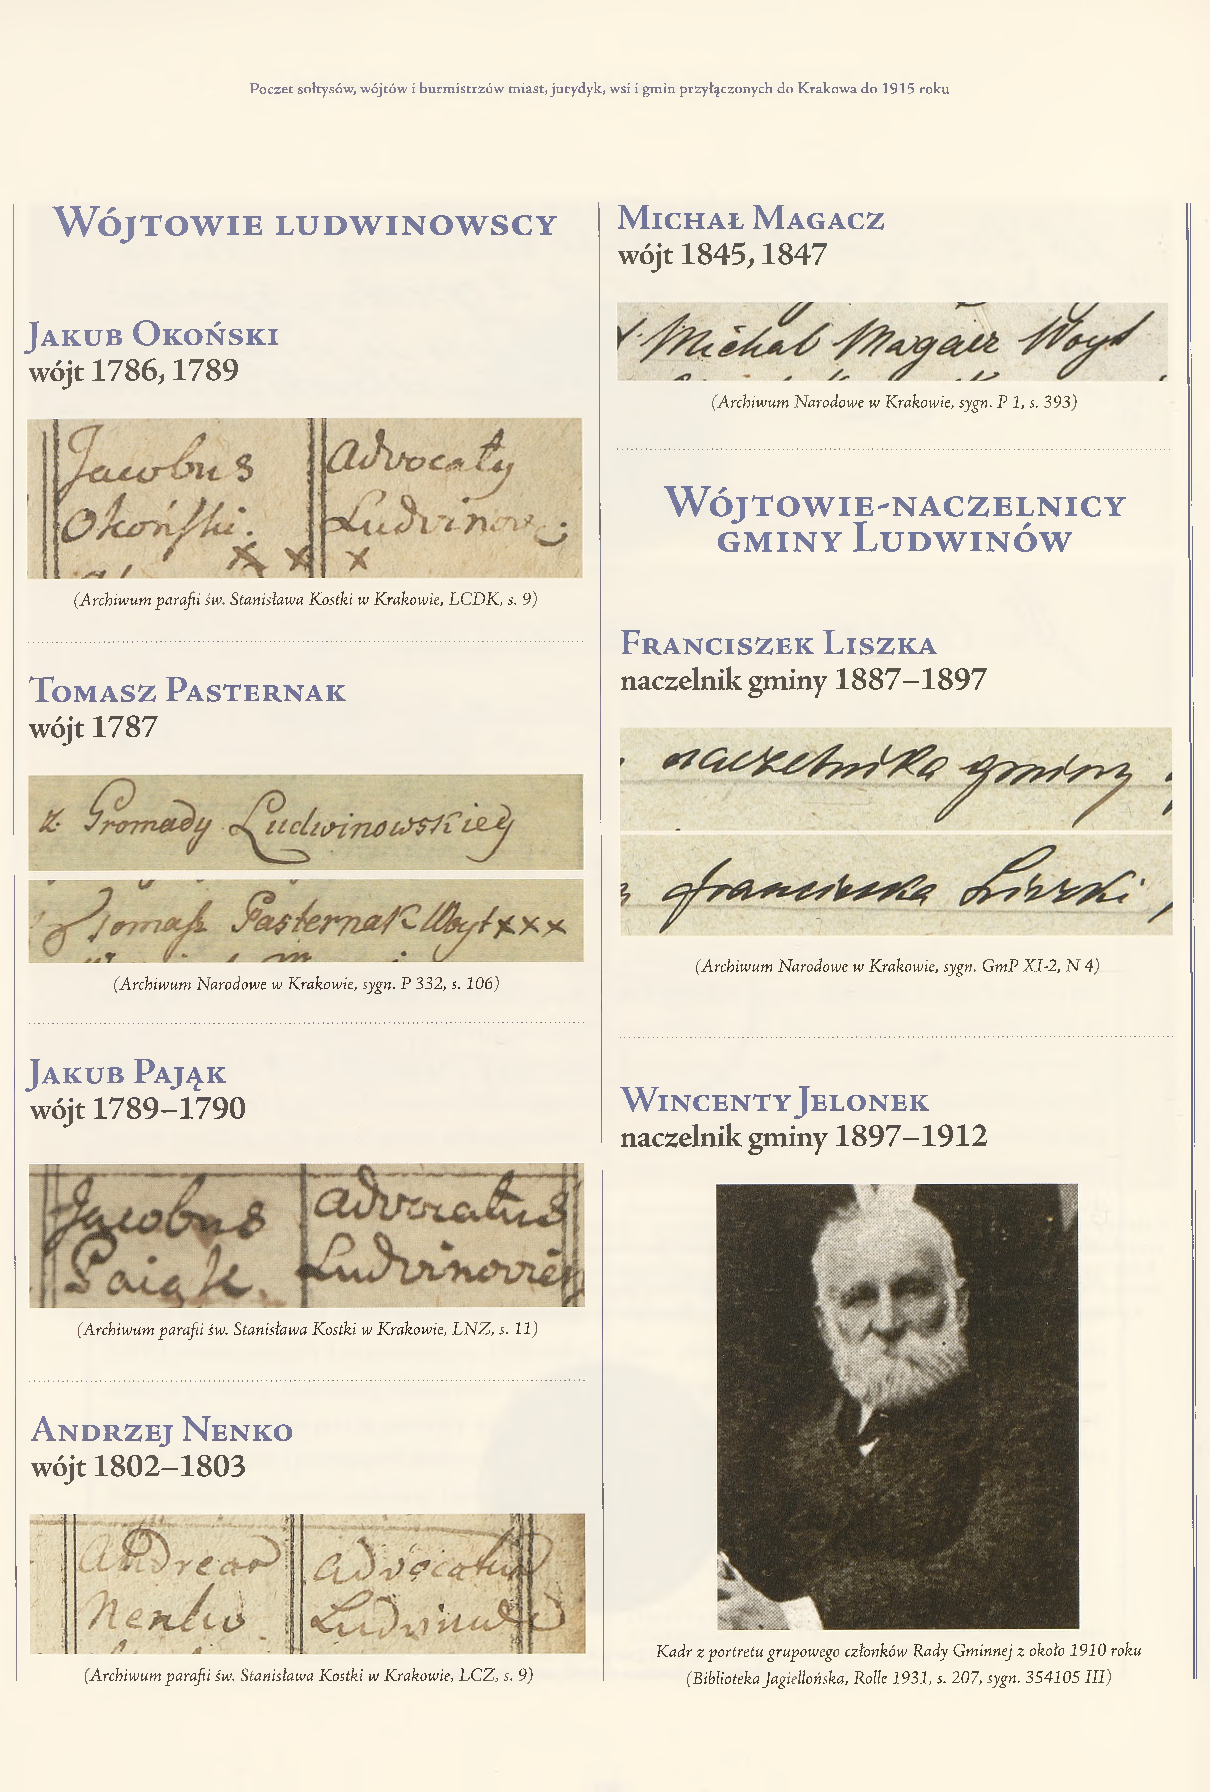 Poczet sołtysów, wójtów i burmistrzów miast, jurydyk, wsi i gmin przyłączonych do Krakowa do 1915 roku
Wójtowie ludwinowscy
Jakub Okoński
wójt 1786, 1789
Jacobus Advocaty
Okoński. Ludvinov:
x x x
(Archiwum parafii św. Stanisława Kostki w Krakowie, LCDK, s. 9)
Tomasz Pasternak
wójt 1787
z. Gromady Ludwinowskiey
Tomasz Pasternak Woyt xxx
(Archiwum Narodowe w Krakowie, sygn. P 332, s. 106)
Jakub Pająk
wójt 1789–1790
Jacobus Advocatus
Paiąk.
(Archiwum parafii św. Stanisława Kostki w Krakowie, LNZ, s. 11)
Andrzej Nenko
wójt 1802–1803
Andreas Advocatus
Nenko
(Archiwum parafii św. Stanisława Kostki w Krakowie, LCZ, s. 9)
Michał Magacz
wójt 1845, 1847
Michal Magacz Woyt
(Archiwum Narodowe w Krakowie, sygn. P 1, s. 393)
Wójtowie-naczelnicy
gminy Ludwinów
Franciszek Liszka
naczelnik gminy 1887–1897
naczelnika gminy
Franciszka Liszki,
(Archiwum Narodowe w Krakowie, sygn. GmP XI-2, N 4)
Wincenty Jelonek
naczelnik gminy 1897–1912
Kadr z portretu grupowego członków Rady Gminnej z około 1910 roku
(Biblioteka Jagiellońska, Rolle 1931, s. 207, sygn. 354105 III)